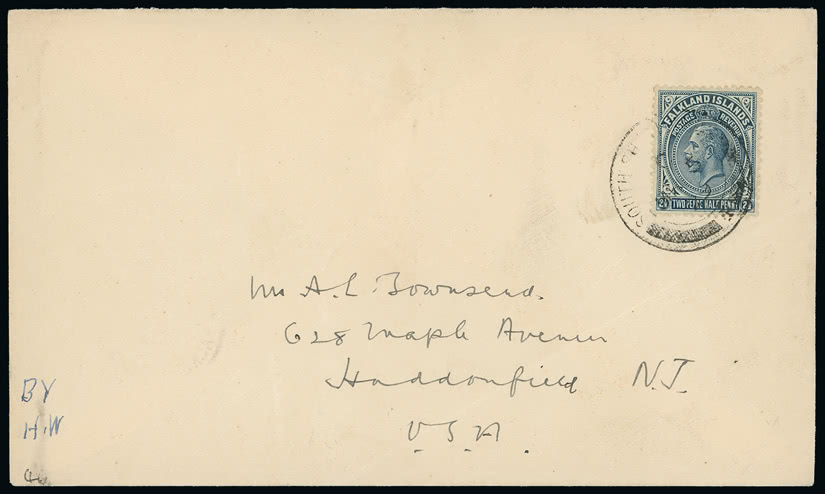 FALKLAND ISLANDS
POSTAGE REVENUE
2½ TWO PENCE HALF PENNY 2½
SOUTH
Mr A. L. Townsend.
628 Maple Avenue
Haddonfield N.J.
U.S.A.
BY
H.W